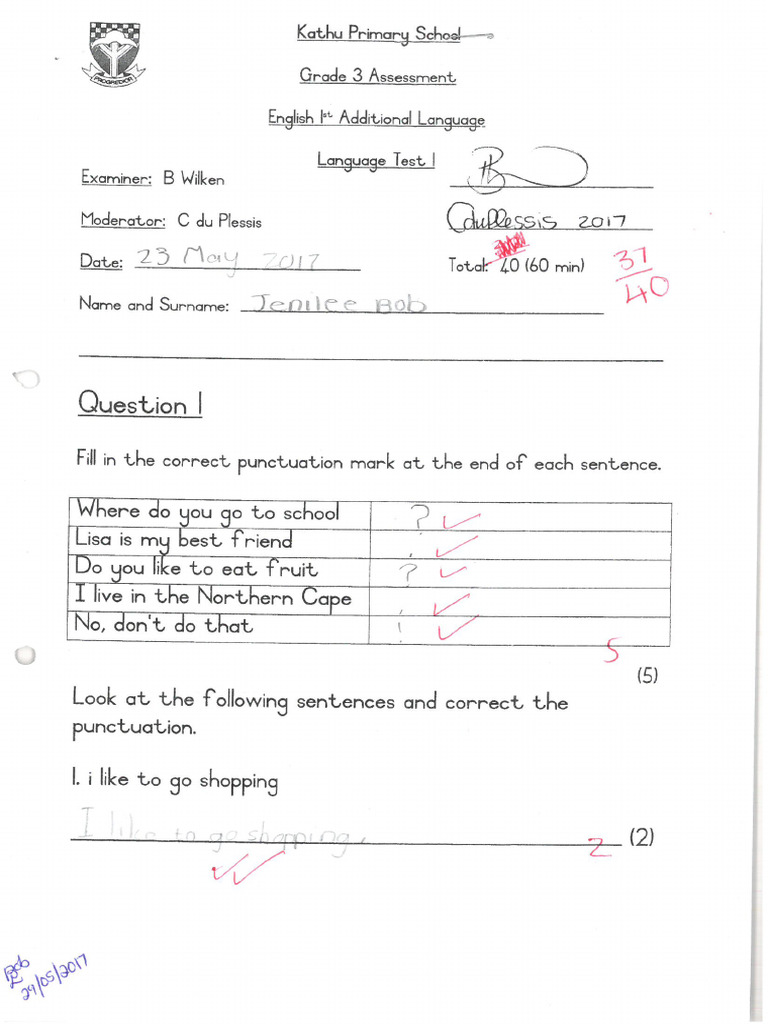 PROGREDIOR
Kathu Primary School
Grade 3 Assessment
English 1st Additional Language
Language Test 1
Examiner: B Wilken
Moderator: C du Plessis
CduPlessis 2017
Date: 23 May 2017
Total: 40 (60 min)
37
40
Name and Surname: Jenilee Bob
Question 1
Fill in the correct punctuation mark at the end of each sentence.
Where do you go to school ?
Lisa is my best friend .
Do you like to eat fruit ?
I live in the Northern Cape .
No, don't do that !
5
(5)
Look at the following sentences and correct the
punctuation.
1. i like to go shopping
I like to go shopping. 2 (2)
Bob
29/05/2017